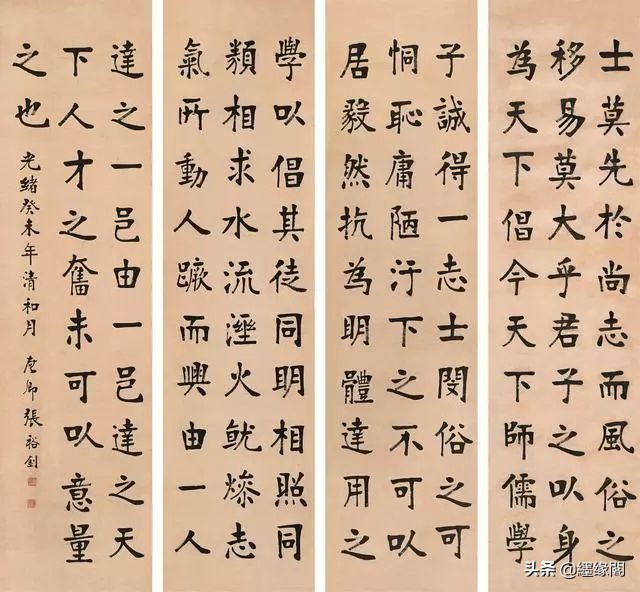 士莫先於尚志而風俗之
移易莫大乎君子之以身
為天下倡今天下師儒學
子誠得一志士閔俗之可
恫恥庸陋汙下之不可以
居毅然抗為明體達用之
學以倡其徒同明相照同
類相求水流溼火就燥志
氣所動人蹶而興由一人
達之一邑由一邑達之天
下人才之奮未可以意量
之也
光緒癸未年清和月 廉卿張裕釗
头条 @纆缘閣